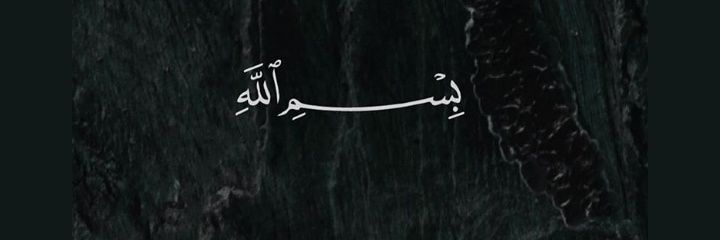 بِسْمِ ٱللَّهِ